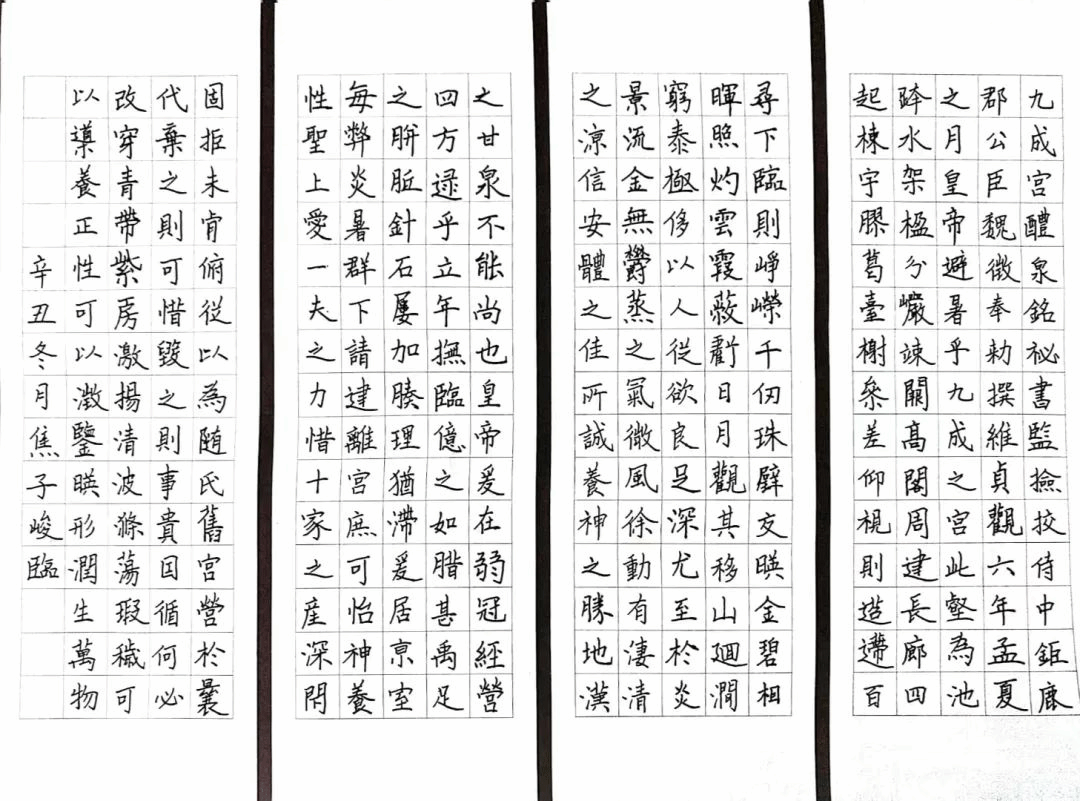 九成宮醴泉銘祕書監撿挍侍中鉅鹿
郡公臣魏徵奉勅撰維貞觀六年孟夏
之月皇帝避暑乎九成之宮此壑為池
跨水架楹分巖竦闕高閣周建長廊四
起棟宇膠葛臺榭叅差仰視則迢遰百
尋下臨則崢嶸千仞珠璧交暎金碧相
暉照灼雲霞蔽虧日月觀其移山迴澗
窮泰極侈以人從欲良足深尤至於炎
景流金無欝蒸之氣微風徐動有淒清
之涼信安體之佳所誠養神之勝地漢
之甘泉不能尚也皇帝爰在弱冠經營
四方逯乎立年撫臨億之如腊甚禹足
之胼胝針石屢加腠理猶滯爰居京室
每弊炎暑群下請建離宮庶可怡神養
性聖上愛一夫之力惜十家之產深閇
固拒未肯俯從以為随氏舊宮營於曩
代棄之則可惜毀之則事貴因循何必
改穿青帶紫房激揚清波滌蕩瑕穢可
以導養正性可以澂鑒暎形潤生萬物
辛丑冬月焦子峻臨